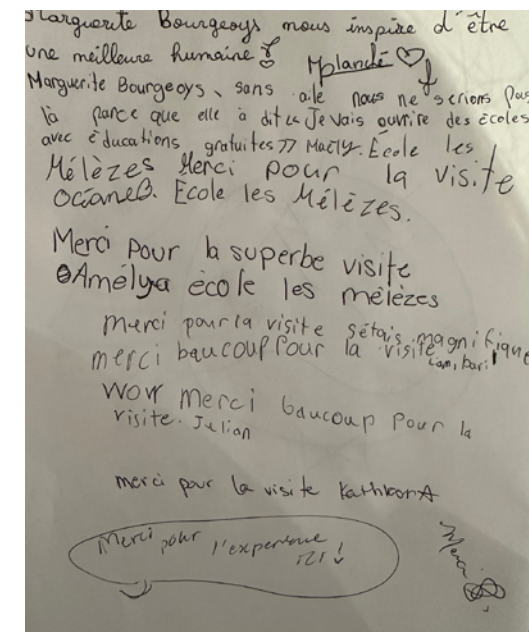 Marguerite Bourgeoys nous inspire d'être
une meilleure humaine
Marguerite Bourgeoys, sans aile nous ne serions pas
là parce que elle à dit « Je vais ouvrire des écoles
avec éducations gratuites » Maëly. École les
Mélèzes Merci pour la visite
OcéaneB. École les Mélèzes.
Merci pour la superbe visite
Amélya école les mélèzes
merci pour la visite sétais magnifique
merci baucoup Pour la visite
Wow merci baucoup Pour la
visite. Julian
merci pour la visite
Merci pour l'experience
ici !
Merci